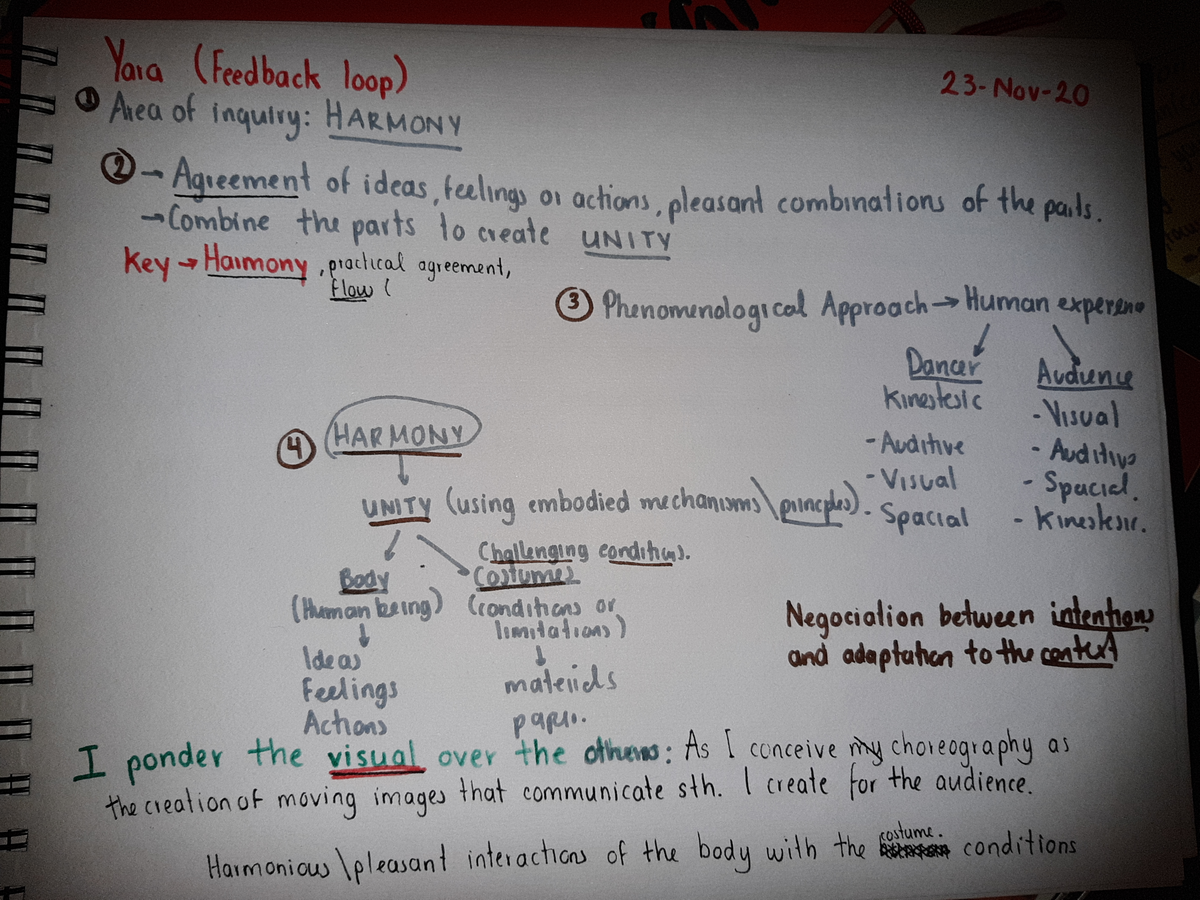 Yara (Feedback loop)
23-Nov-20
① Area of inquiry: HARMONY
② → Agreement of ideas, feelings or actions, pleasant combinations of the parts.
→ Combine the parts to create UNITY
Key → Harmony, practical agreement,
flow (
③ Phenomenological Approach → Human experienc
Dancer
Kinestesic
- Auditive
- Visual
- Spacial
Audience
- Visual
- Auditive
- Spacial.
- Kinestesic.
④ HARMONY
UNITY (using embodied mechanisms\principles).
Body
(Human being)
Ideas
Feelings
Actions
Challenging conditions.
Costumes
(conditions or
limitations)
materials
paper.
Negociation between intentions
and adaptation to the context
I ponder the visual over the others: As I conceive my choreography as
the creation of moving images that communicate sth. I create for the audience.
Harmonious \pleasant interactions of the body with the costume. conditions